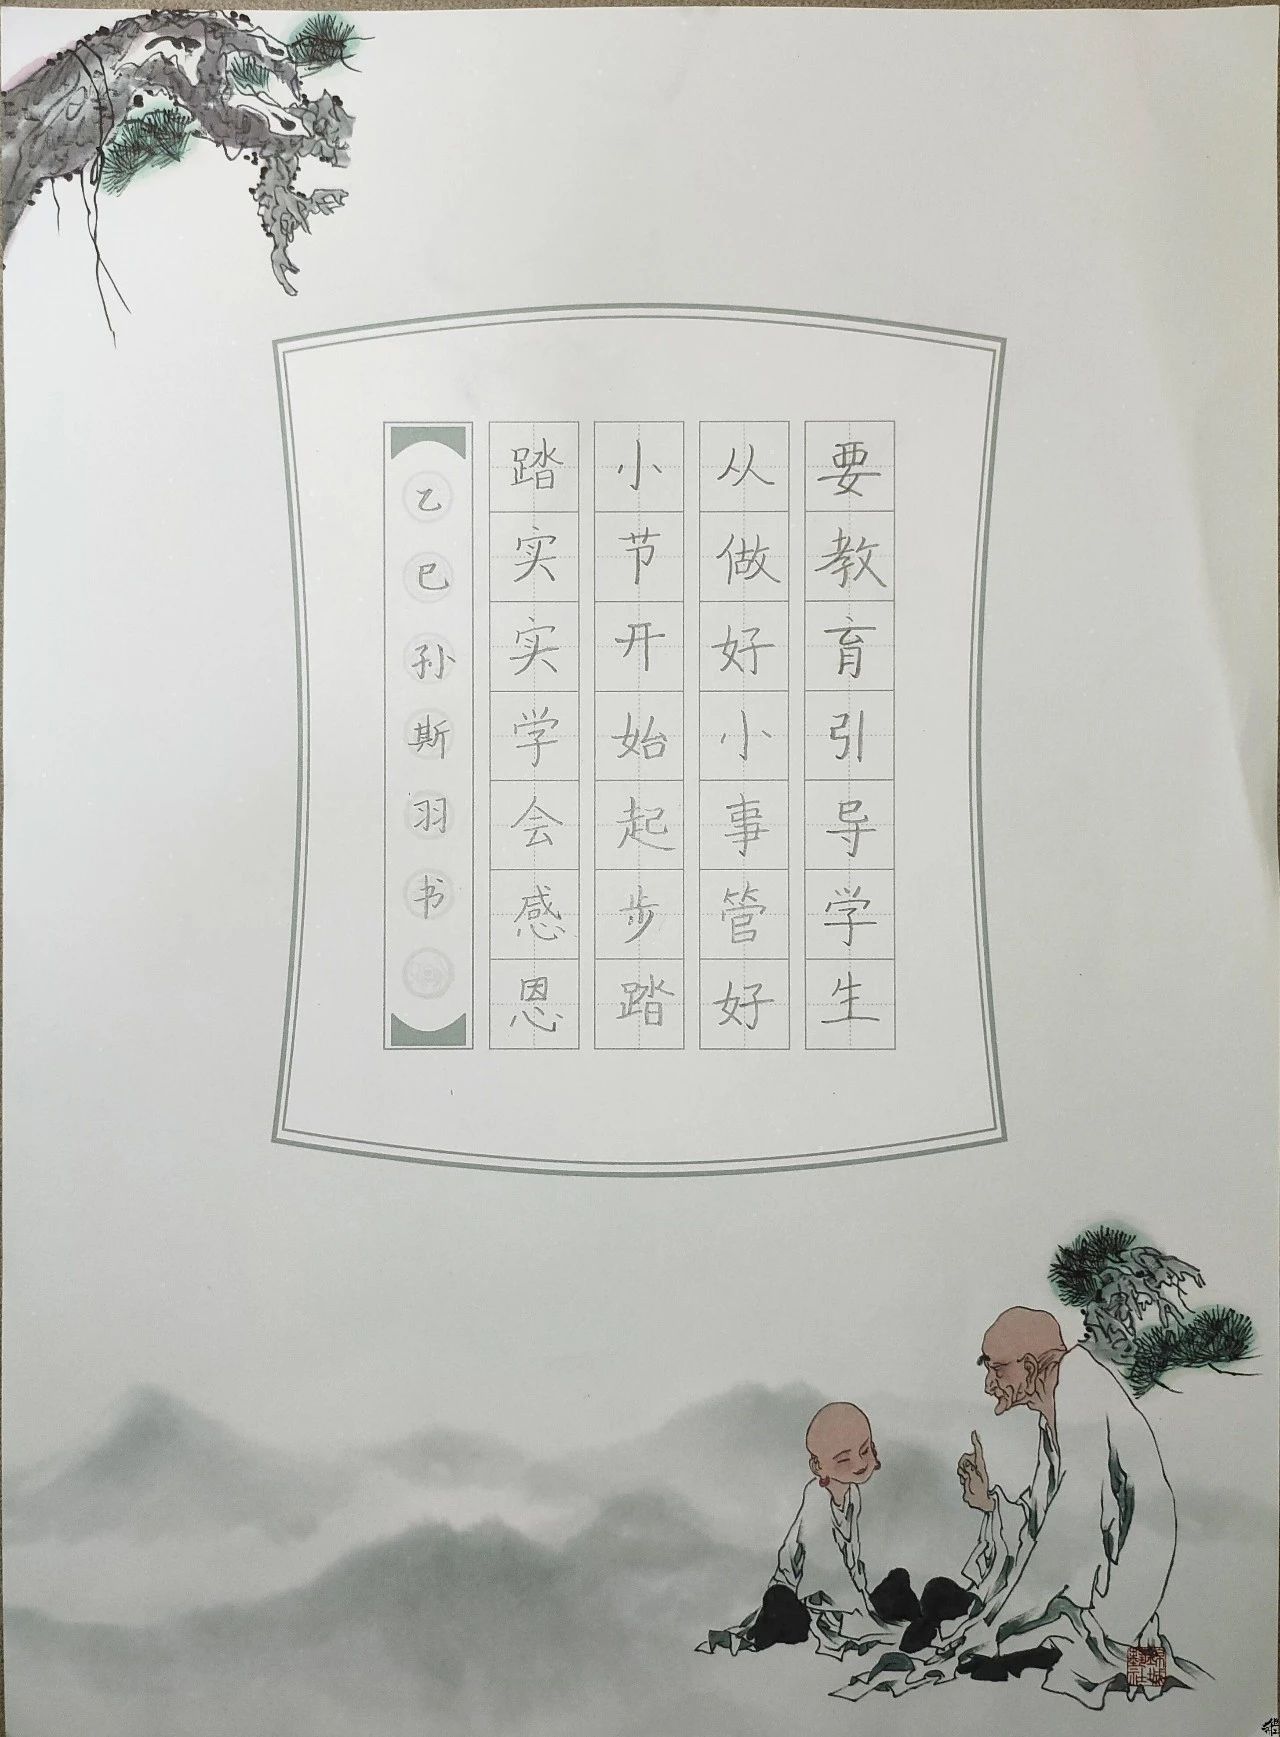 要教育引导学生
从做好小事管好
小节开始起步踏
踏实实学会感恩
乙巳孙斯羽书